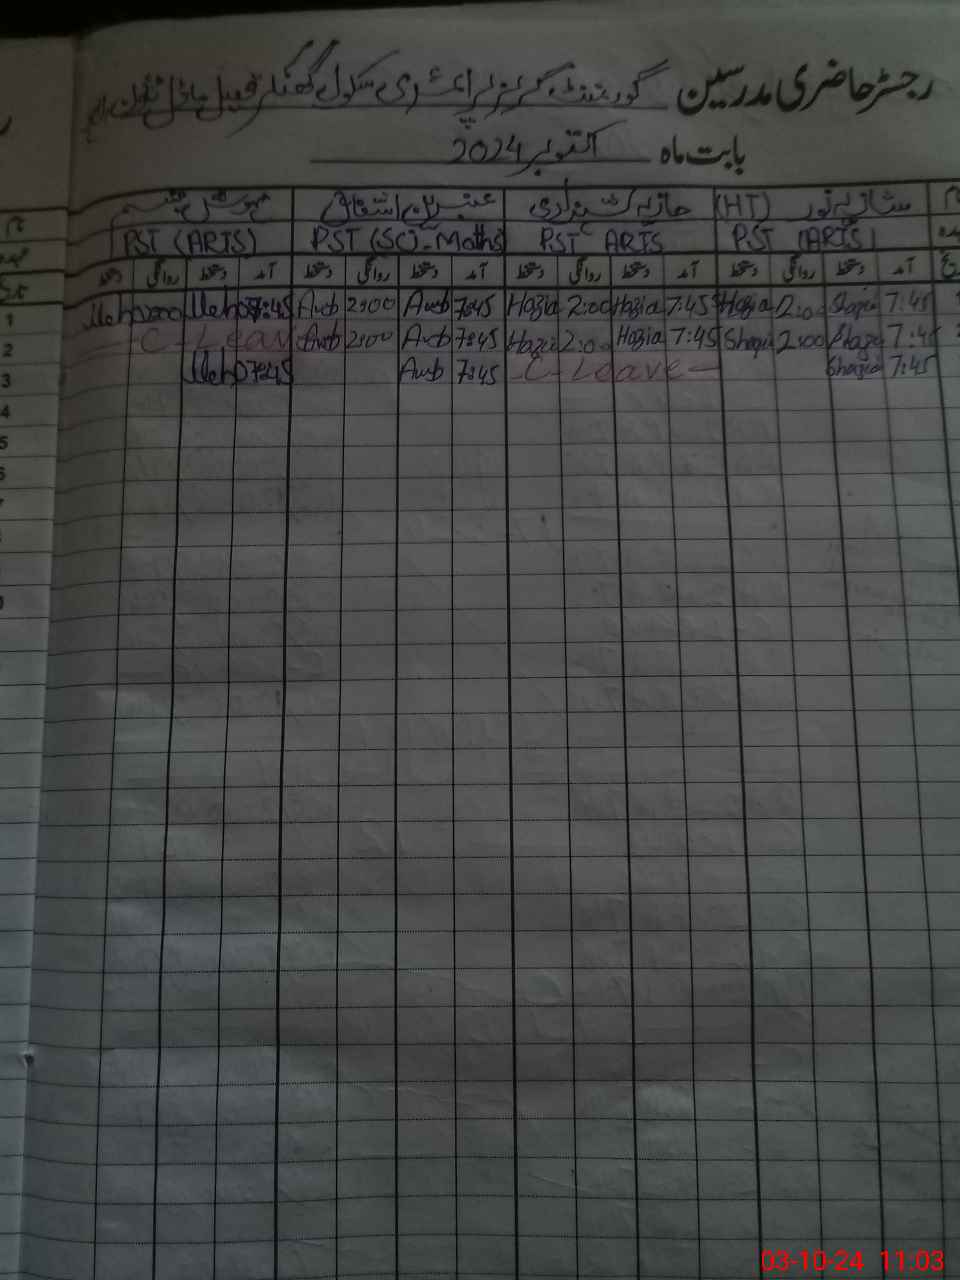 رجسٹر حاضری مدرسین گورنمنٹ گرلز پرائمری سکول
بابت ماہ اکتوبر 2024
شازیہ نور (HT) حازیہ شہزادی عنبرین اشفاق
PST (ARTS) PST ARTS PST (SC)-Maths PST (ARTS)
آمد دستخط روانگی دستخط آمد دستخط روانگی دستخط آمد دستخط روانگی دستخط آمد دستخط روانگی دستخط
1 7:45 Shazia 2:00 7:45 Hazia 2:00 Hazia 7:45 Amb 2:00 Amb 7:45 Meh 2:00 Meh
2 7:45 Shazia 2:00 Shazia 7:45 Hazia 2:00 Hazia 7:45 Amb 2:00 Amb C-Leave
3 7:45 Shazia C-Leave 7:45 Amb 7:45 Meh
4
5
03-10-24 11:03